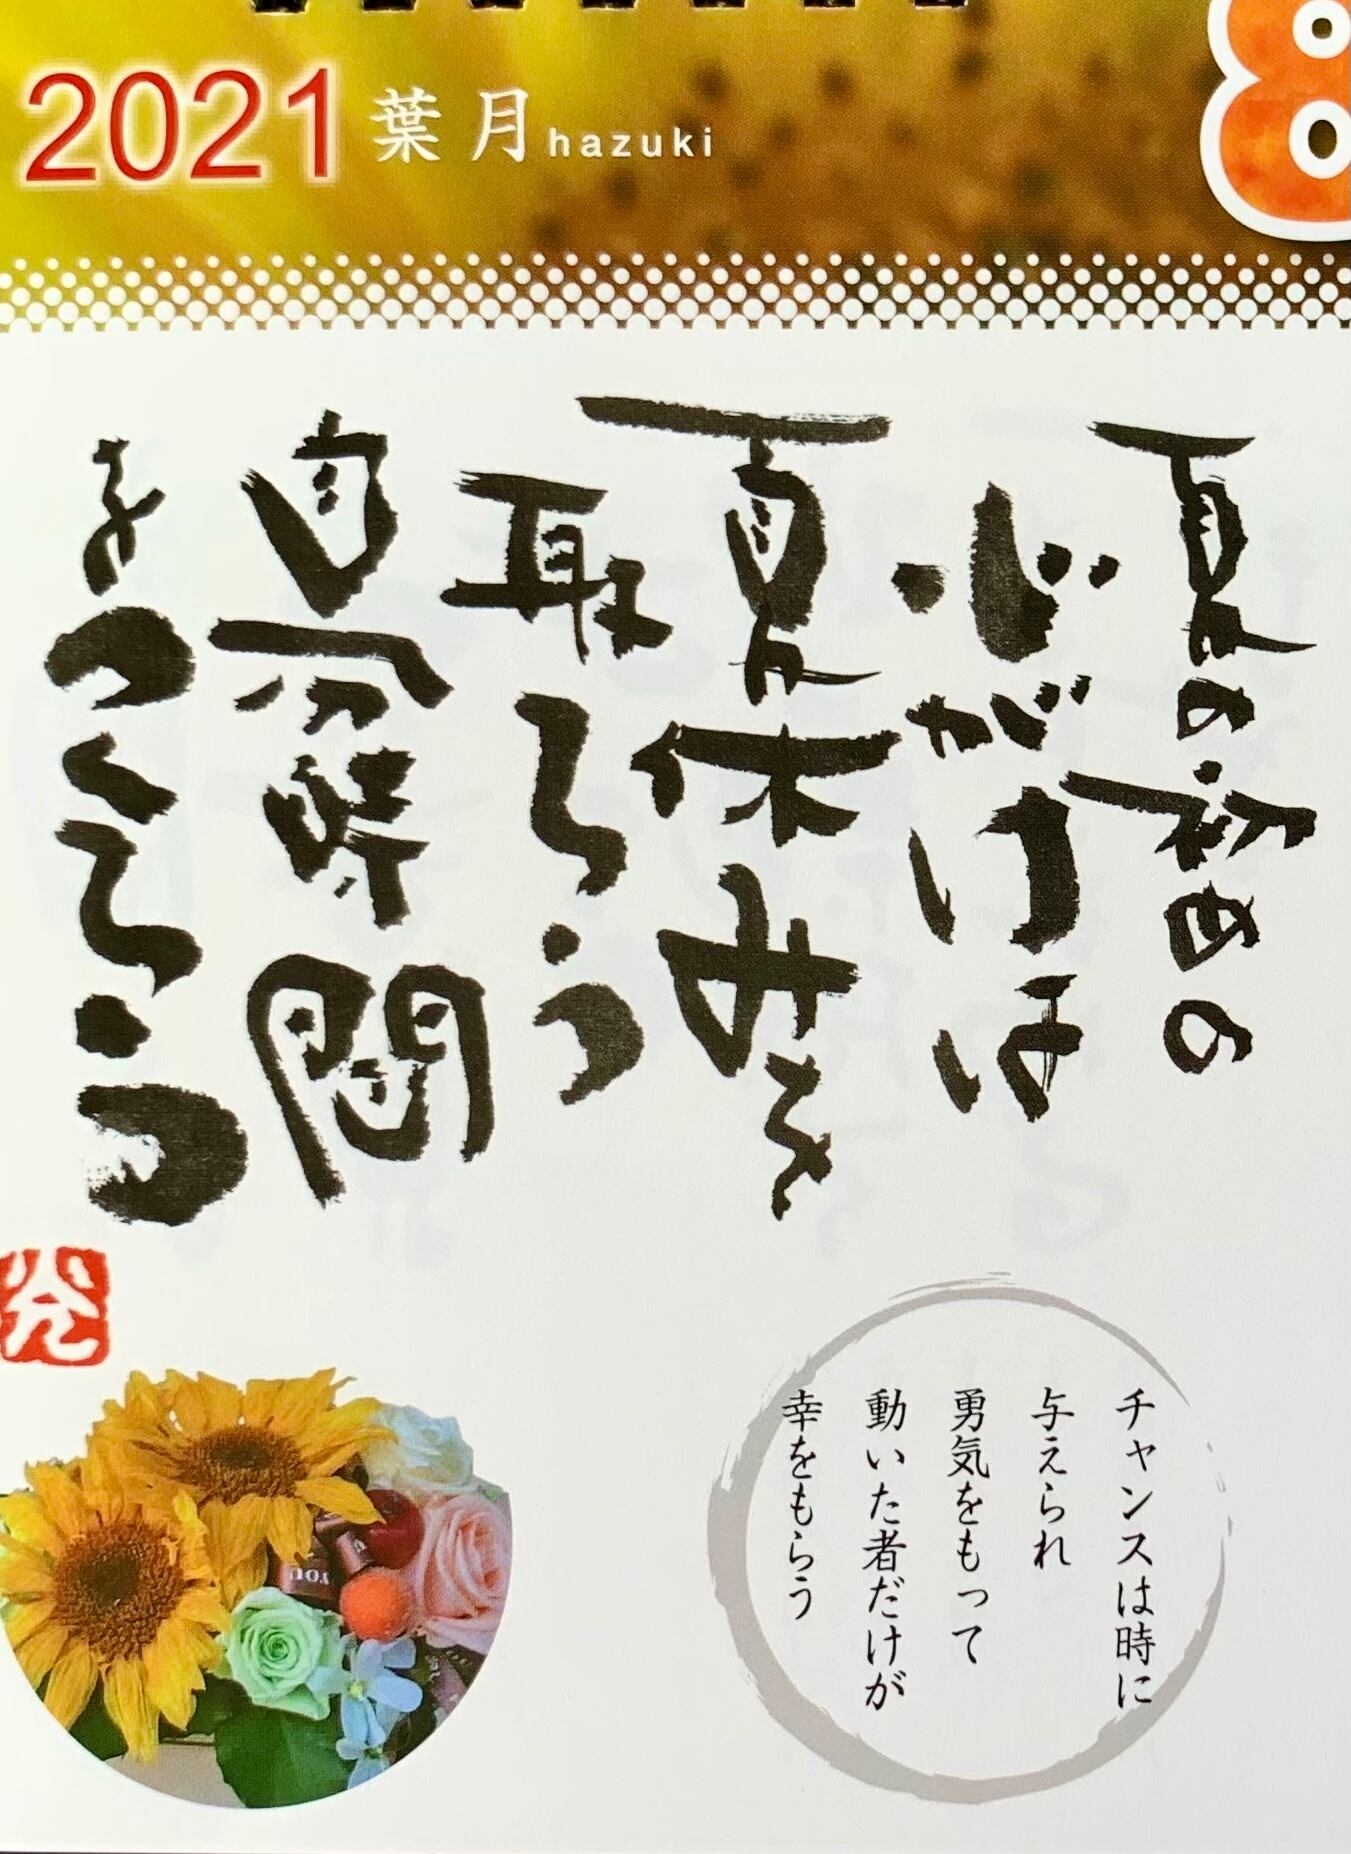 2021 葉月 hazuki
8
夏の癒しの
心がけは
夏休みを
取ろう
自分時間
をつくろう
チャンスは時に
与えられ
勇気をもって
動いた者だけが
幸をもらう
YOU